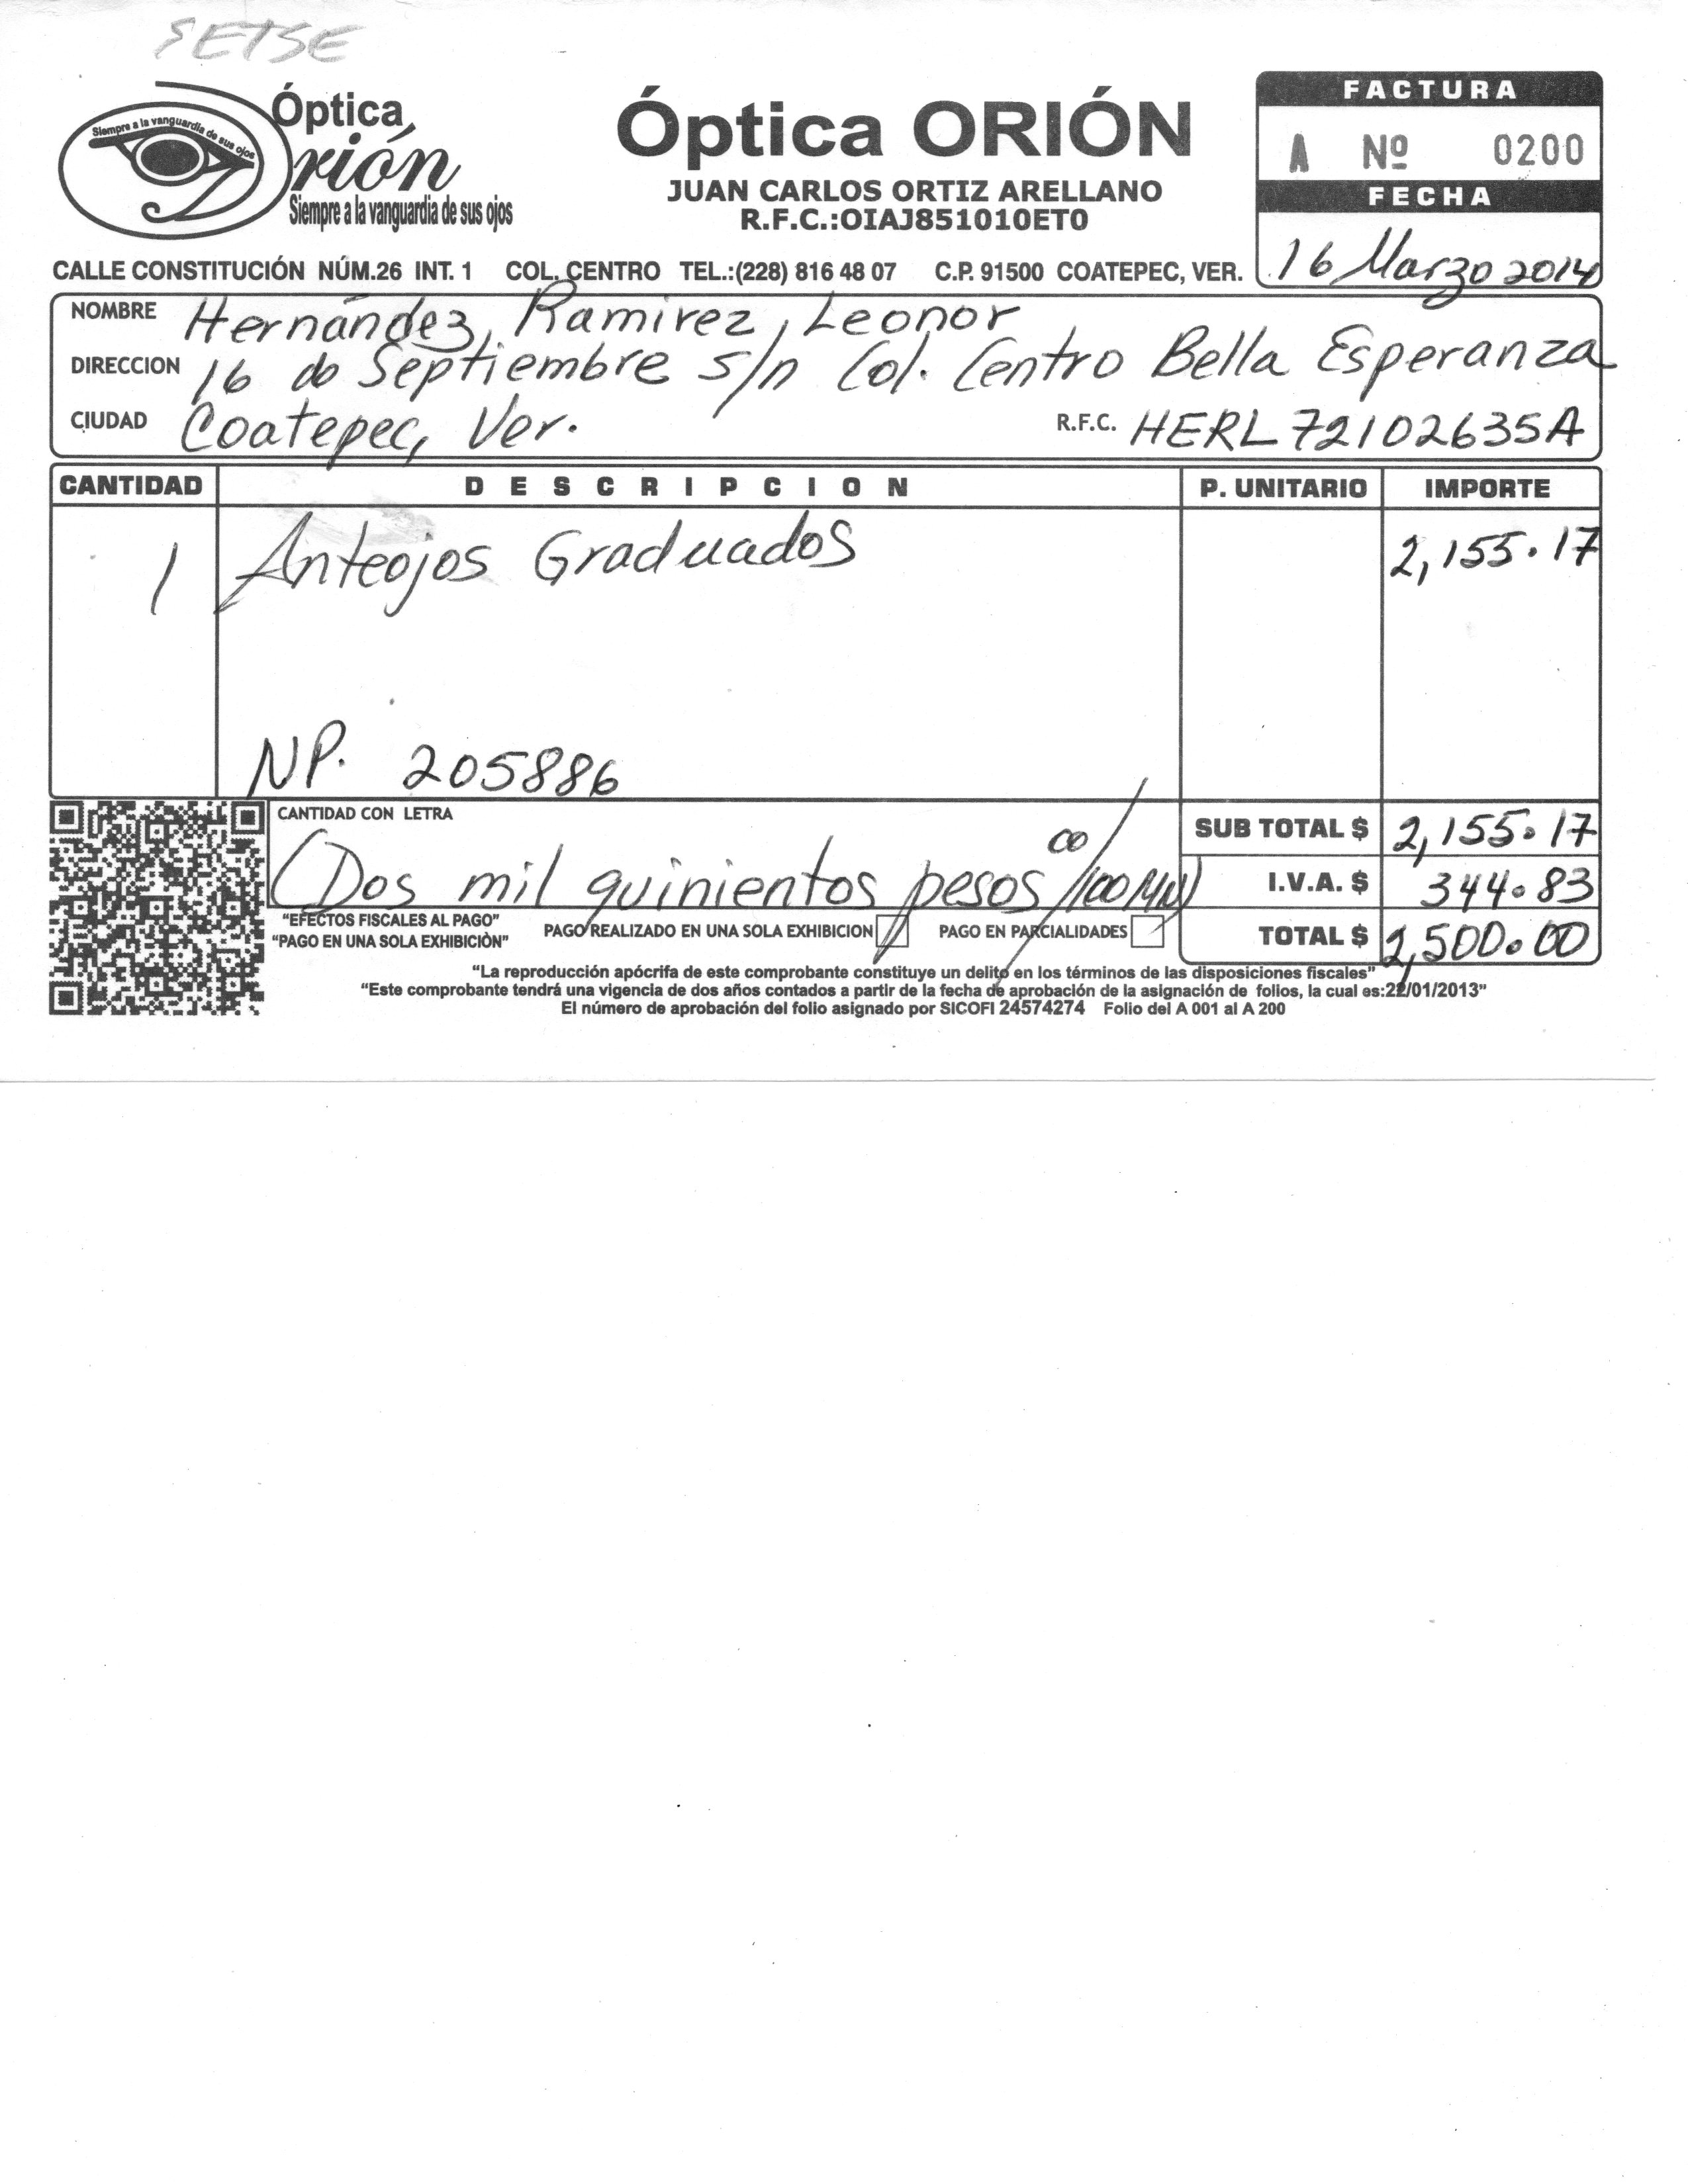 SETSE
Siempre a la vanguardia de sus ojos
Óptica
Orión
Siempre a la vanguardia de sus ojos
Óptica ORIÓN
JUAN CARLOS ORTIZ ARELLANO
R.F.C.:OIAJ851010ET0
FACTURA
A Nº 0200
FECHA
16 Marzo 2014
CALLE CONSTITUCIÓN NÚM.26 INT. 1 COL. CENTRO TEL.:(228) 816 48 07 C.P. 91500 COATEPEC, VER.
NOMBRE Hernández Ramirez, Leonor
DIRECCION 16 de Septiembre s/n Col. Centro Bella Esperanza
CIUDAD Coatepec, Ver. R.F.C. HERL72102635A
CANTIDAD DESCRIPCION P. UNITARIO IMPORTE
1 Anteojos Graduados 2,155.17
NP. 205886
CANTIDAD CON LETRA
(Dos mil quinientos pesos 00/100 MN)
SUB TOTAL $ 2,155.17
I.V.A. $ 344.83
TOTAL $ 2,500.00
"EFECTOS FISCALES AL PAGO"
"PAGO EN UNA SOLA EXHIBICIÒN"
PAGO REALIZADO EN UNA SOLA EXHIBICION PAGO EN PARCIALIDADES
"La reproducción apócrifa de este comprobante constituye un delito en los términos de las disposiciones fiscales"
"Este comprobante tendrá una vigencia de dos años contados a partir de la fecha de aprobación de la asignación de folios, la cual es:22/01/2013"
El número de aprobación del folio asignado por SICOFI 24574274 Folio del A 001 al A 200